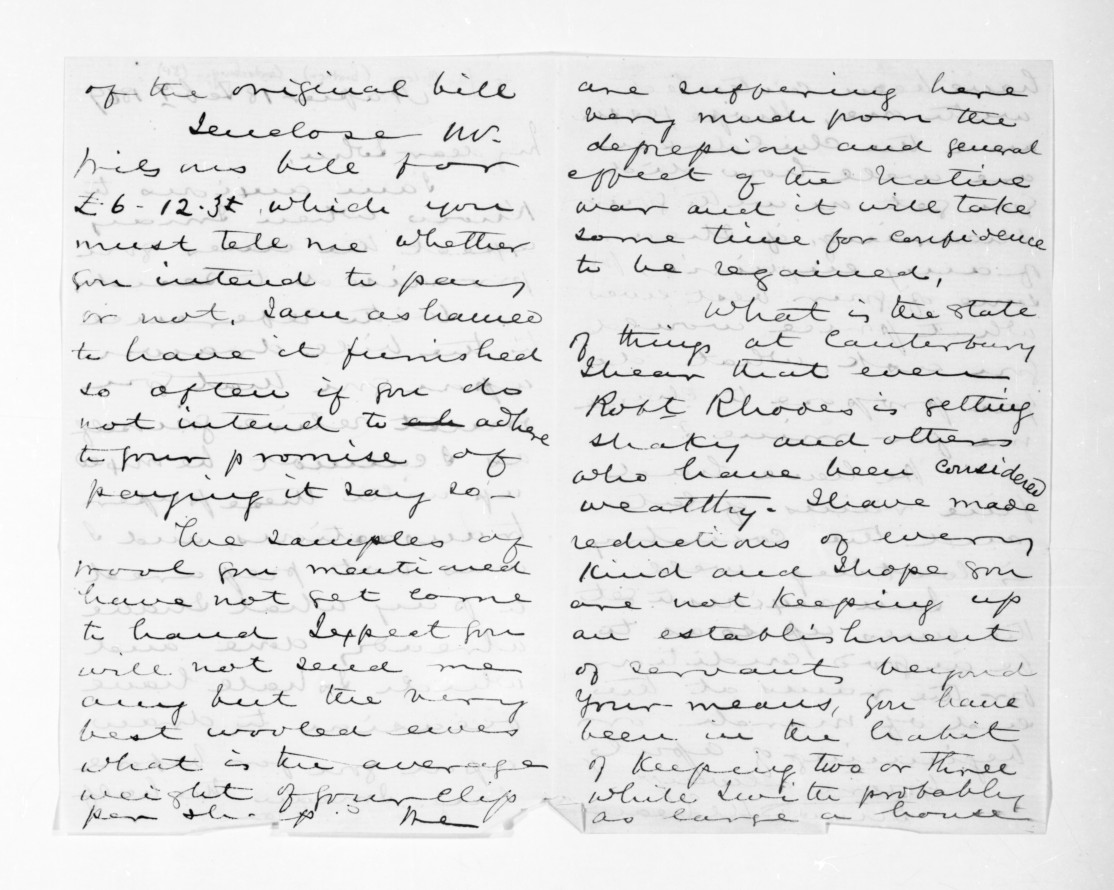 of the original bill
I enclose Mr.
Wilsons bill for
£6-12.3d which you
must tell me whether
you intend to pay
or not, I am ashamed
to have it furnished
so often if you do
not intend to adhere
to your promise of
paying it say so-
The samples of
wool you mentioned
have not yet come
to hand I expect you
will not send me
any but the very
best wooled ewes
what is the average
weight of your clip
per sh-p? We
are suffering here
very much from the
depression and general
effect of the Native
war and it will take
some time for confidence
to be regained,
What is the state
of things at Canterbury
I hear that even
Robt Rhodes is getting
shaky and others
who have been considered
wealthy. I have made
reductions of every
kind and I hope you
are not keeping up
an establishment
of servants beyond
your means, you have
been in the habit
of keeping two or three
while I with probably
as large a house